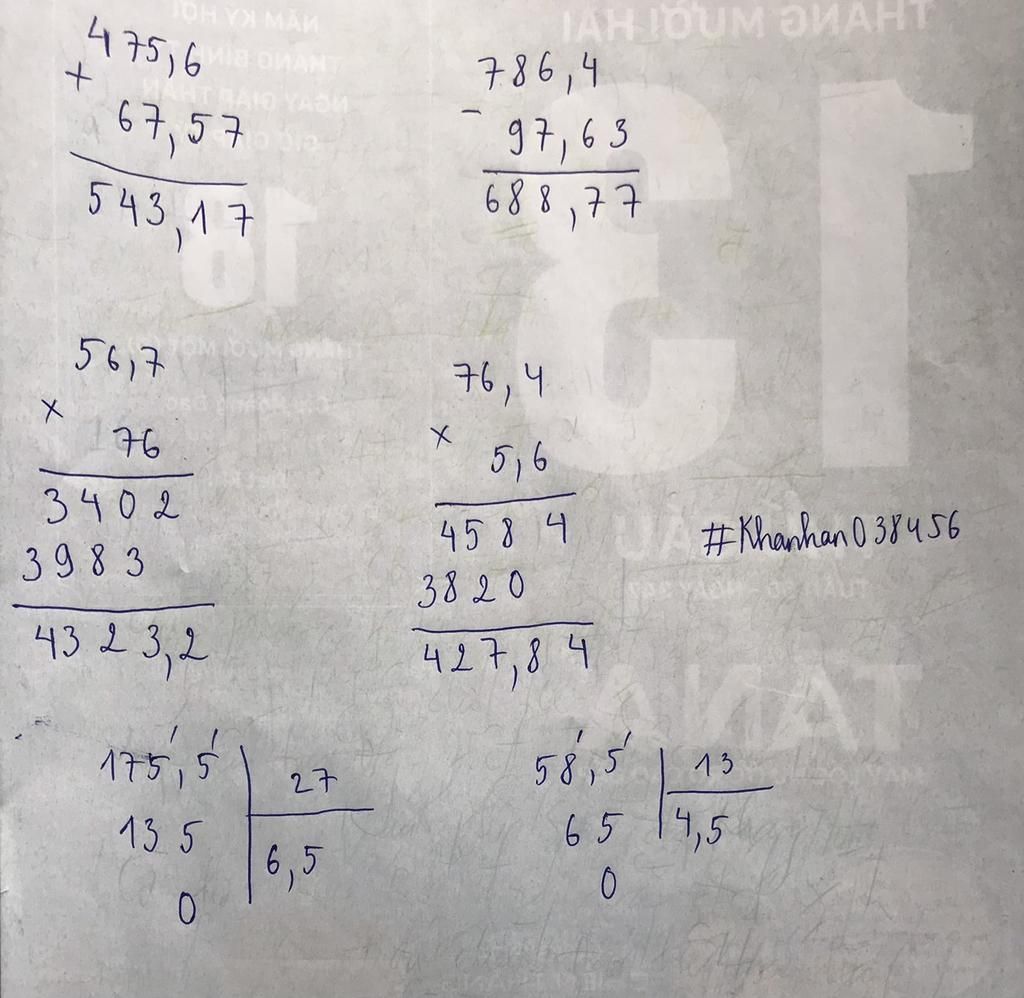 475,6
+
67,57
543,17
786,4
-
97,63
688,77
56,7
x
76
3402
3983
4323,2
76,4
x
5,6
4584
3820
427,84
#Khanhan038456
175,5 27
135 6,5
0
58,5 13
65 4,5
0